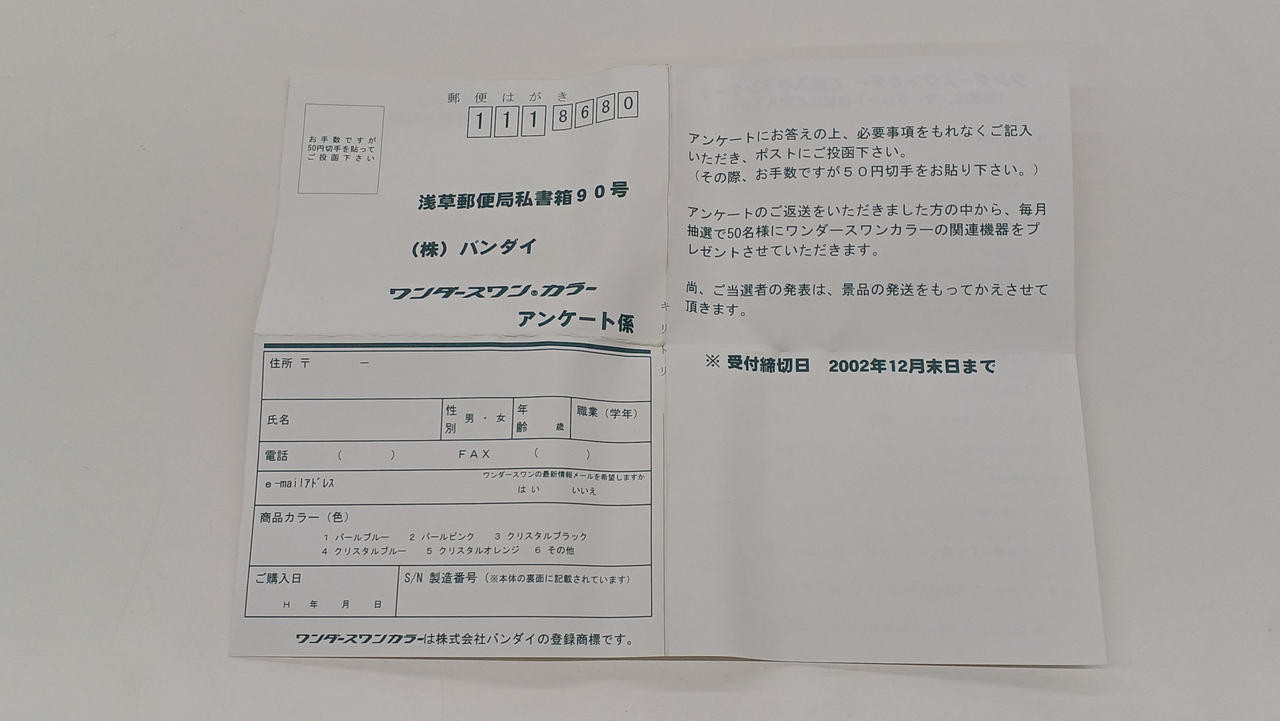 郵便はがき
1118680
お手数ですが
50円切手を貼って
ご投函下さい
浅草郵便局私書箱９０号
（株）バンダイ
ワンダースワン®カラー
アンケート係
住所 〒　　－
氏名
性別
男・女
年齢
歳
職業（学年）
電話　　（　　）　　ＦＡＸ　　（　　）
e-mailｱﾄﾞﾚｽ
ワンダースワンの最新情報メールを希望しますか
はい　　いいえ
商品カラー（色）
1 パールブルー　2 パールピンク　3 クリスタルブラック
4 クリスタルブルー　5 クリスタルオレンジ　6 その他
ご購入日
Ｈ　年　月　日
S/N 製造番号（※本体の裏面に記載されています）
ワンダースワンカラーは株式会社バンダイの登録商標です。
キリトリ
アンケートにお答えの上、必要事項をもれなくご記入
いただき、ポストにご投函下さい。
（その際、お手数ですが５０円切手をお貼り下さい。）
アンケートのご返送をいただきました方の中から、毎月
抽選で50名様にワンダースワンカラーの関連機器をプ
レゼントさせていただきます。
尚、ご当選者の発表は、景品の発送をもってかえさせて
頂きます。
※ 受付締切日　2002年12月末日まで